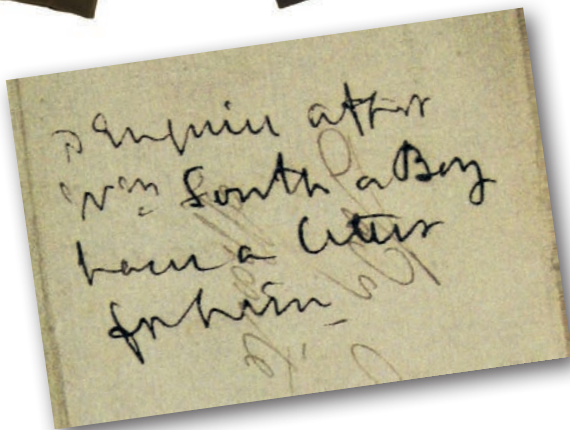 Enquire after
Wm South a Boy
have a letter
for him